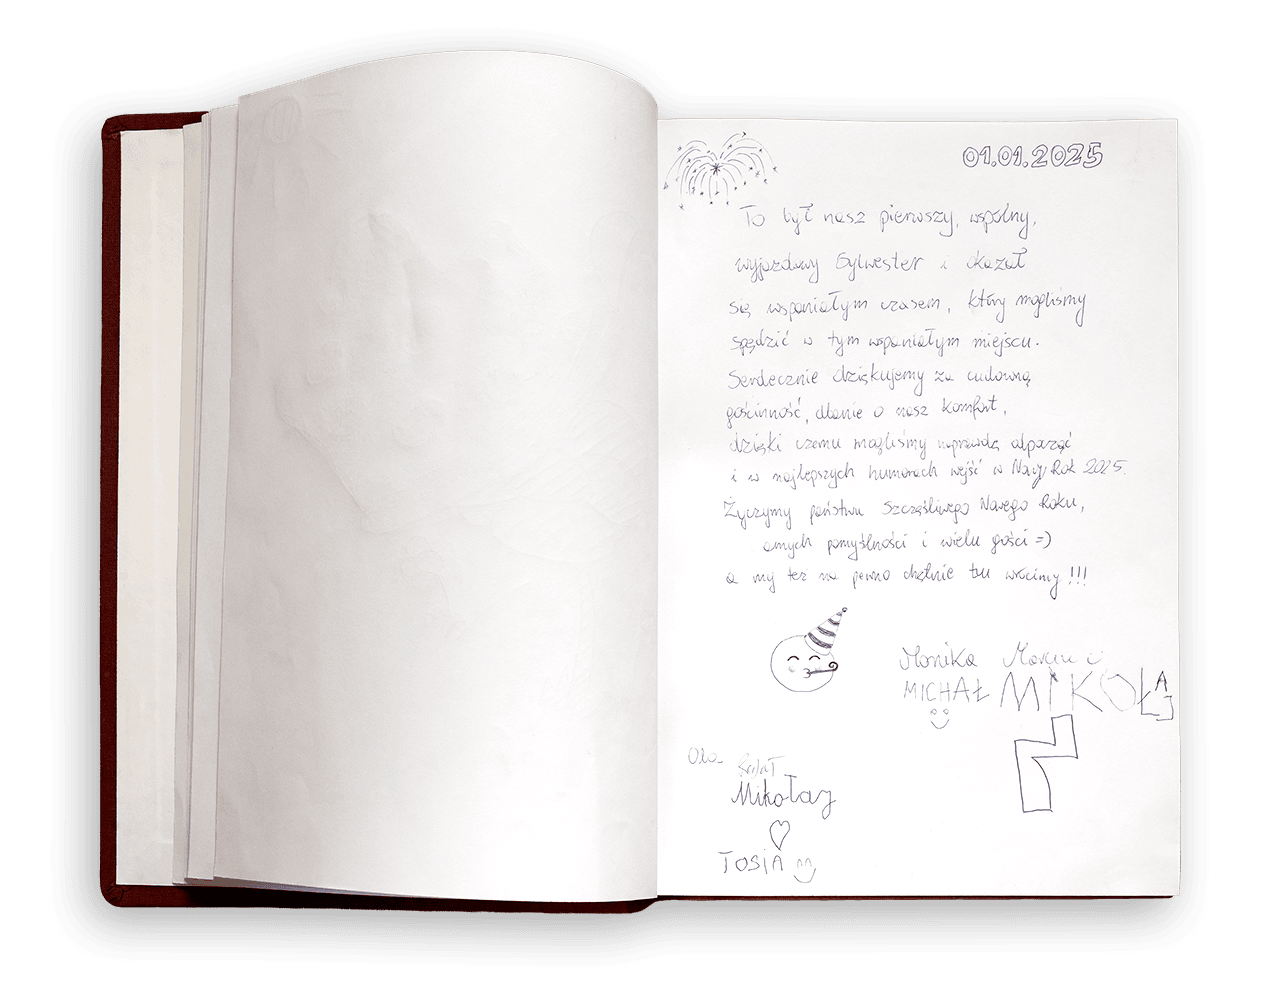 01.01.2025
To był nasz pierwszy, wspólny,
wyjazdowy Sylwester i okazał
się wspaniałym czasem, który mogliśmy
spędzić w tym wspaniałym miejscu.
Serdecznie dziękujemy za cudowną
gościnność, dbanie o nasz komfort,
dzięki czemu mogliśmy naprawdę odpocząć
i w najlepszych humorach wejść w Nowy Rok 2025.
Życzymy państwu Szczęśliwego Nowego Roku,
samych pomyślności i wielu gości =)
a my też na pewno chętnie tu wrócimy !!!
Monika Marcin i
MICHAŁ MIKOŁAJ
Ola
Rafał
Mikołaj
TOSIA